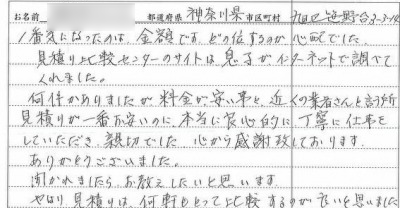 お名前 都道府県 神奈川県 市区町村
1番気になったのは、金額です。どの位するのか心配でした。
見積り比較センターのサイトは息子がインターネットで調べて
くれました。
何件かありましたが料金が安い事と、近くの業者さんと言う所
見積りが一番お安いのに、本当に良心的に丁寧に仕事を
していただき、親切でした。心から感謝致しております。
ありがとうございました。
聞かれましたら、お教えしたいと思います。
やはり見積りは、何軒もとって比較するのが良いと思いました